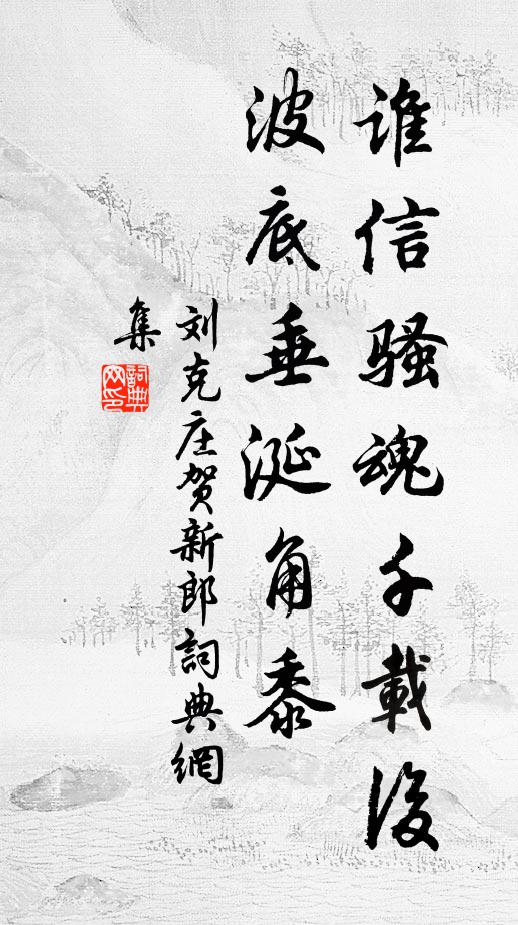 谁信骚魂千載後
波底垂涎角黍
刘克庄贺新郎詞典網
集
詞典网印